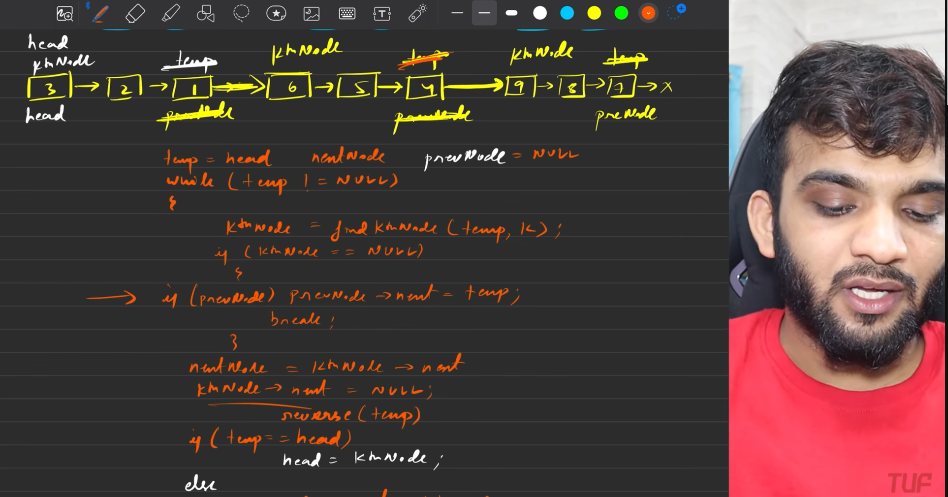 head
kthNode temp kthNode temp kthNode temp
3 → 2 → 1 → 6 → 5 → 4 → 9 → 8 → 7 → x
head prevNode prevNode preNode
temp = head nextNode prevNode = NULL
while (temp != NULL)
{
kthNode = findKthNode (temp, K);
if (kthNode == NULL)
{
→ if (prevNode) prevNode → next = temp;
break;
}
nextNode = kthNode → next
kthNode → next = NULL;
reverse (temp)
if (temp == head)
head = kthNode;
else
TUF